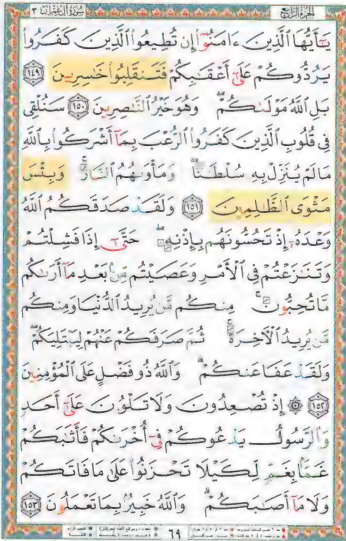 الجزء الرابع سورة آل عمران ٣
يَـٰٓأَيُّهَا ٱلَّذِينَ ءَامَنُوٓا۟ إِن تُطِيعُوا۟ ٱلَّذِينَ كَفَرُوا۟
يَرُدُّوكُمْ عَلَىٰٓ أَعْقَـٰبِكُمْ فَتَنقَلِبُوا۟ خَـٰسِرِينَ ١٤٩
بَلِ ٱللَّهُ مَوْلَىٰكُمْ ۖ وَهُوَ خَيْرُ ٱلنَّـٰصِرِينَ ١٥٠ سَنُلْقِى
فِى قُلُوبِ ٱلَّذِينَ كَفَرُوا۟ ٱلرُّعْبَ بِمَآ أَشْرَكُوا۟ بِٱللَّهِ
مَا لَمْ يُنَزِّلْ بِهِۦ سُلْطَـٰنًا ۖ وَمَأْوَىٰهُمُ ٱلنَّارُ ۚ وَبِئْسَ
مَثْوَى ٱلظَّـٰلِمِينَ ١٥١ وَلَقَدْ صَدَقَكُمُ ٱللَّهُ
وَعْدَهُۥٓ إِذْ تَحُسُّونَهُم بِإِذْنِهِۦ ۖ حَتَّىٰٓ إِذَا فَشِلْتُمْ
وَتَنَـٰزَعْتُمْ فِى ٱلْأَمْرِ وَعَصَيْتُم مِّنۢ بَعْدِ مَآ أَرَىٰكُم
مَّا تُحِبُّونَ ۚ مِنكُم مَّن يُرِيدُ ٱلدُّنْيَا وَمِنكُم
مَّن يُرِيدُ ٱلْـَٔاخِرَةَ ۚ ثُمَّ صَرَفَكُمْ عَنْهُمْ لِيَبْتَلِيَكُمْ ۖ
وَلَقَدْ عَفَا عَنكُمْ ۗ وَٱللَّهُ ذُو فَضْلٍ عَلَى ٱلْمُؤْمِنِينَ
١٥٢ ۞ إِذْ تُصْعِدُونَ وَلَا تَلْوُۥنَ عَلَىٰٓ أَحَدٍ
وَٱلرَّسُولُ يَدْعُوكُمْ فِىٓ أُخْرَىٰكُمْ فَأَثَـٰبَكُمْ
غَمًّۢا بِغَمٍّ لِّكَيْلَا تَحْزَنُوا۟ عَلَىٰ مَا فَاتَكُمْ
وَلَا مَآ أَصَـٰبَكُمْ ۗ وَٱللَّهُ خَبِيرٌۢ بِمَا تَعْمَلُونَ ١٥٣
٦٩